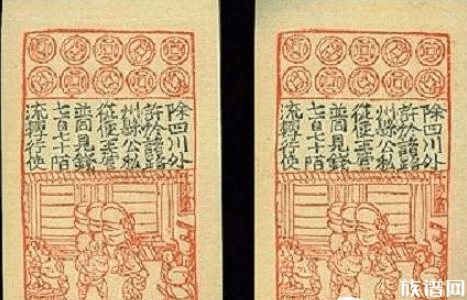 除四川外
許於諸路
州縣公私
從便主管
並同見錢
七百七十陌
流轉行使
除四川外
許於諸路
州縣公私
從便主管
並同見錢
七百七十陌
流轉行使
族谱网